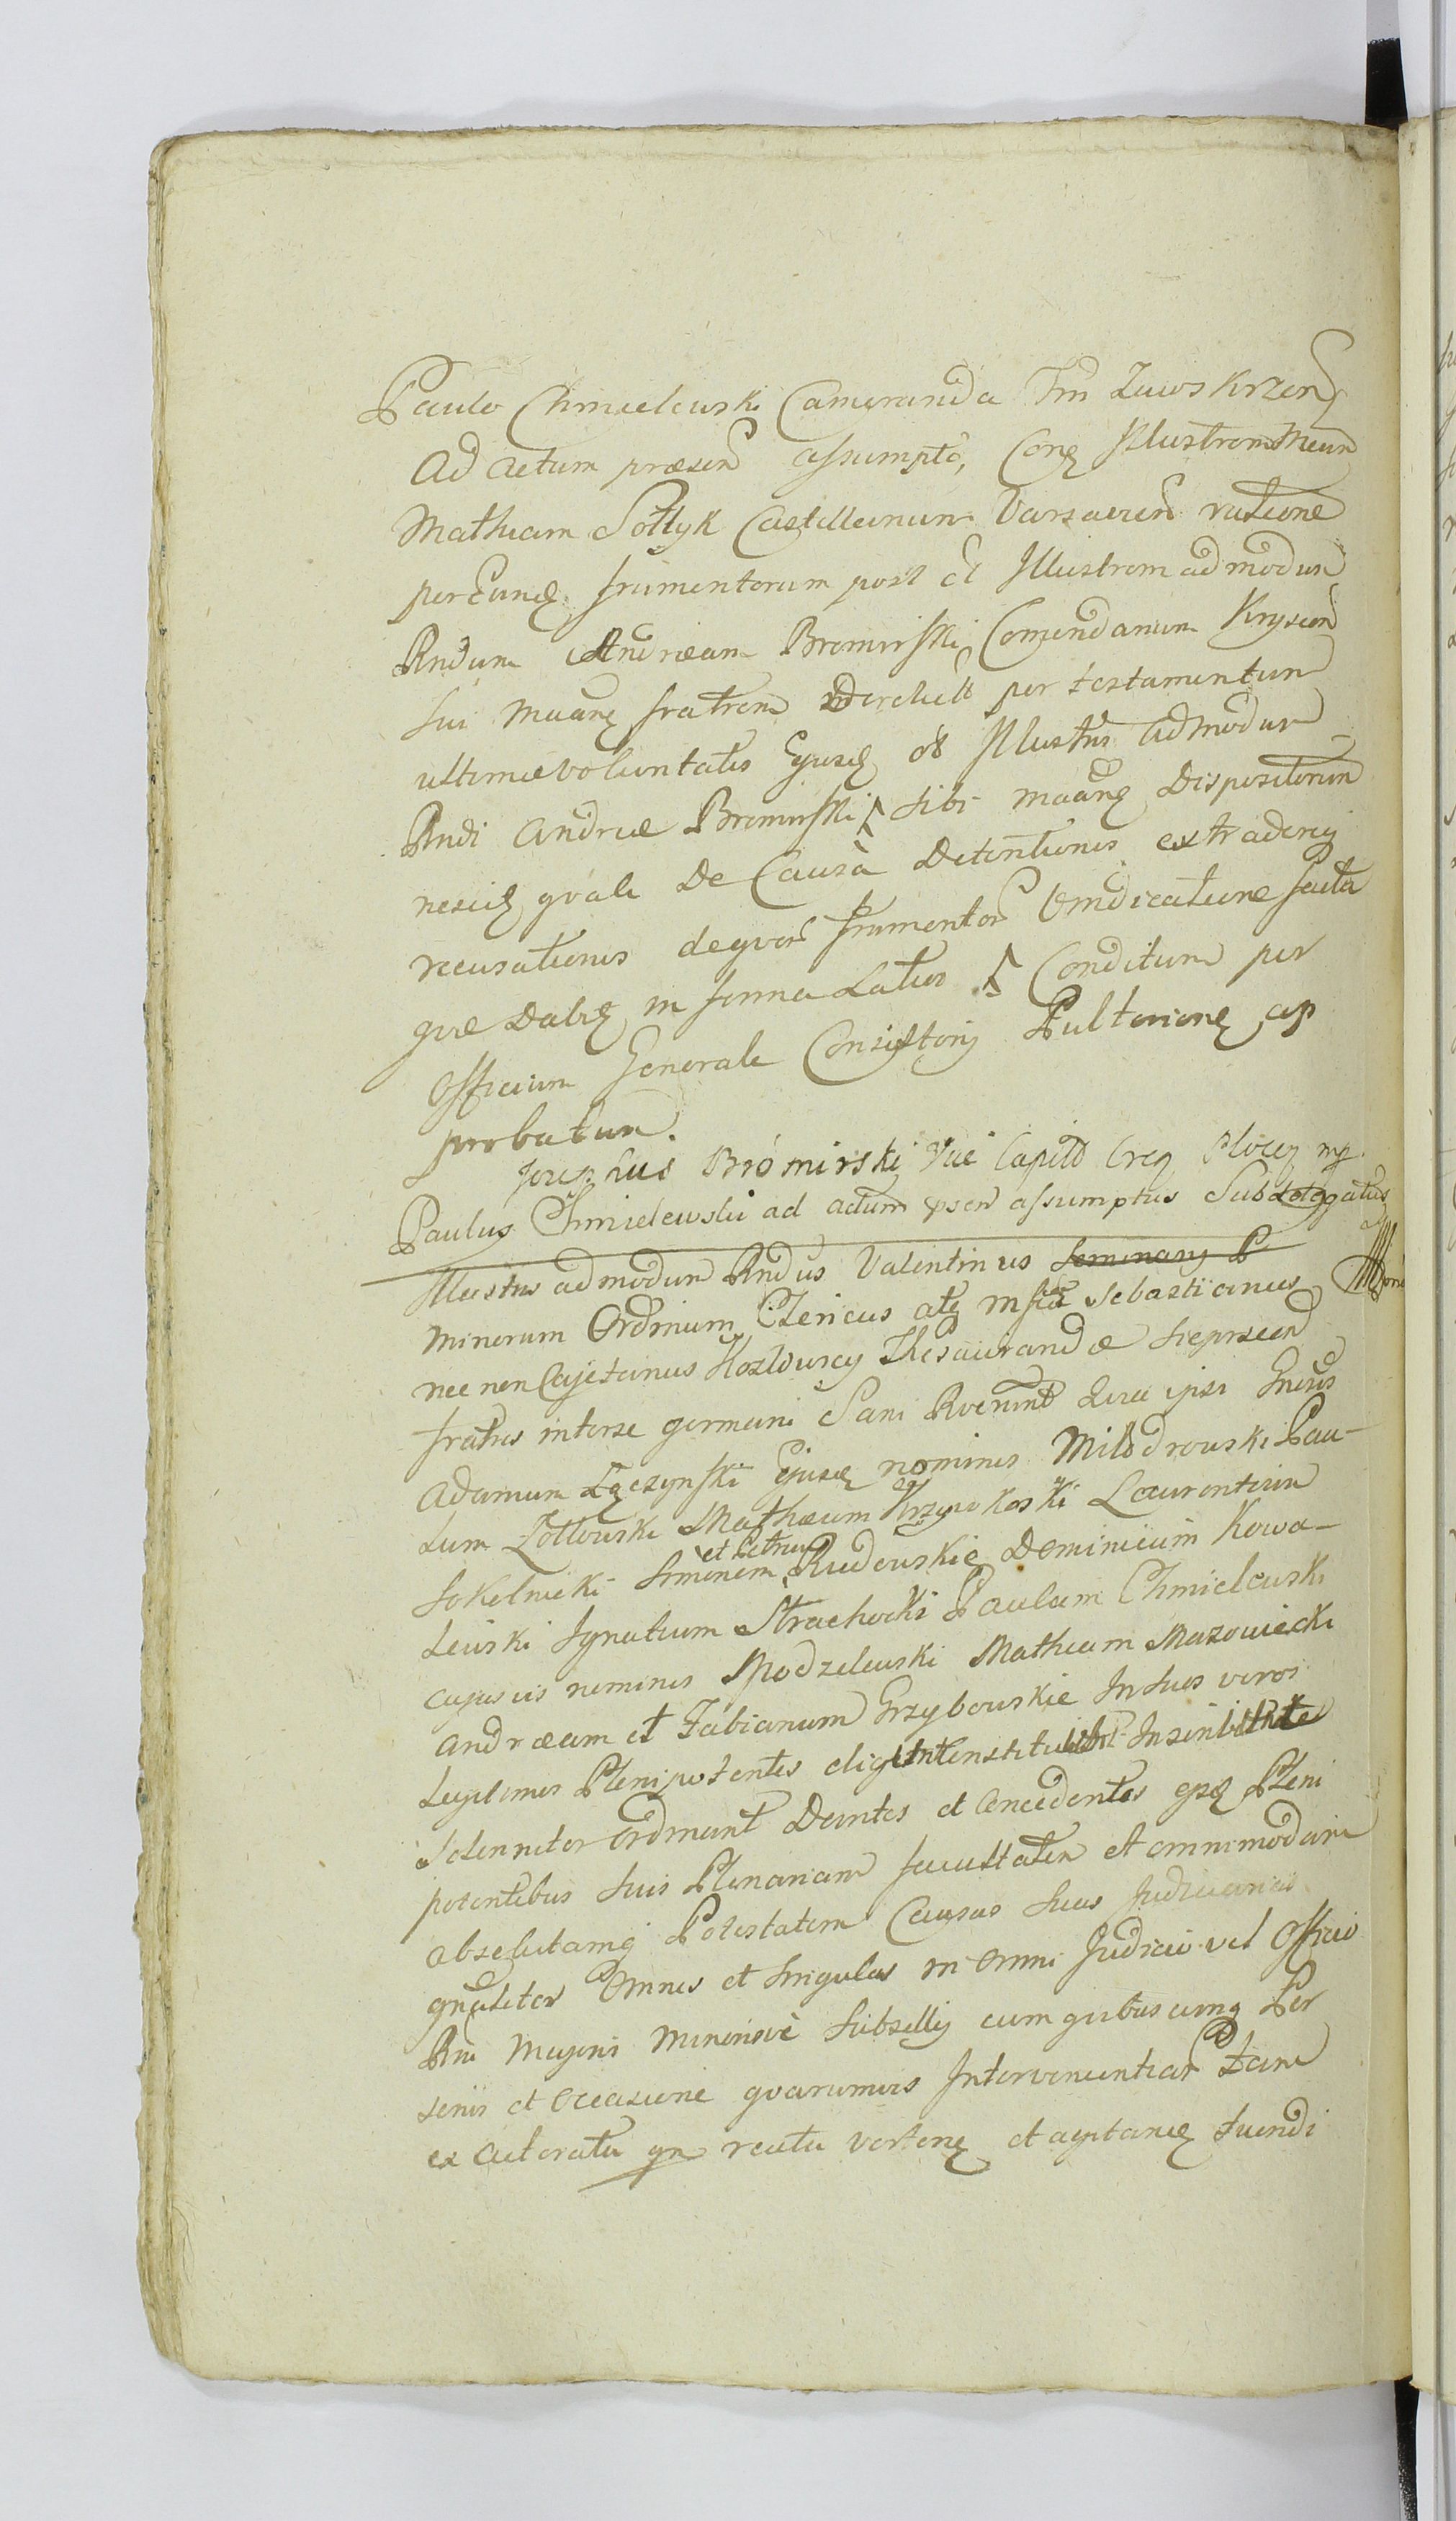 Paulo Chmielewski Camerarida Trn Zawskrzen
Ad Actum præsen assumpto, Cong Illustrem Meum
Mathiam Sołtyk Castellanum Varsavien ratione
per Eung frumentorum post ol Illustrem admodum
Rndum Andræam Bromirski Comendarium Krysien
sui Maang fratrem Derelict per testamentum
ultimæ voluntatis Ejusq ol Illustris Admodum
Rndi Andreæ Bromirski sibi maang Dispositorum
nesciq quali De Causa Detentionis extraderiq
recusationis dequor frumentor Vindicatione facta
quæ Dabiq in forma Latior Conditum per
Officium Generale Consistorij Pultovieng ap
probatum.
Josephus Bromirski Vice Capitts Creg Plocen mp
Paulus Chmielewski ad actum psen assumptus Subdelegatus
Illustris admodum Rndus Valentinus Seminarij P
Minorum Ordinum Clericus atq Mfcus Sebastianus
nec non Cajetanus Kozłowscy Thesaurandæ Sieprscen
fratres interse germani Sani Rverint Quia ipsi Gnosos
Adamum Łączynski Ejusq nominis Miłodrowski Pau-
lum Żółtowski Mathæum Krzywkoski Laurentium
Sokolnicki Simonem et Petrum Rudowskie Dominicum Kowa-
lewski Ignatium Strachocki Paulum Chmielewski
cujusvis nominis Modzelewski Mathiam Mazowiecki
Andræam et Fabianum Grzybowskie In suos veros
Legitimos Plenipotentes eligunt instituunt
solenniter Ordinant Dantes et Concedentes ejsq Pleni
potentibus suis Plenariam facultatem et omnimodam
absolutamq Potestatem Causas suas Judiciarias
gnaliter Omnes et Singulas in Omni Judicio vel Officio
Rni Majoris Minorisve Subsellij cum quibuscunq Per
sonis et Occasione quarumvis Intervenientiar Tam
ex Actoratu qm reatu verteng et agitanq tuendi